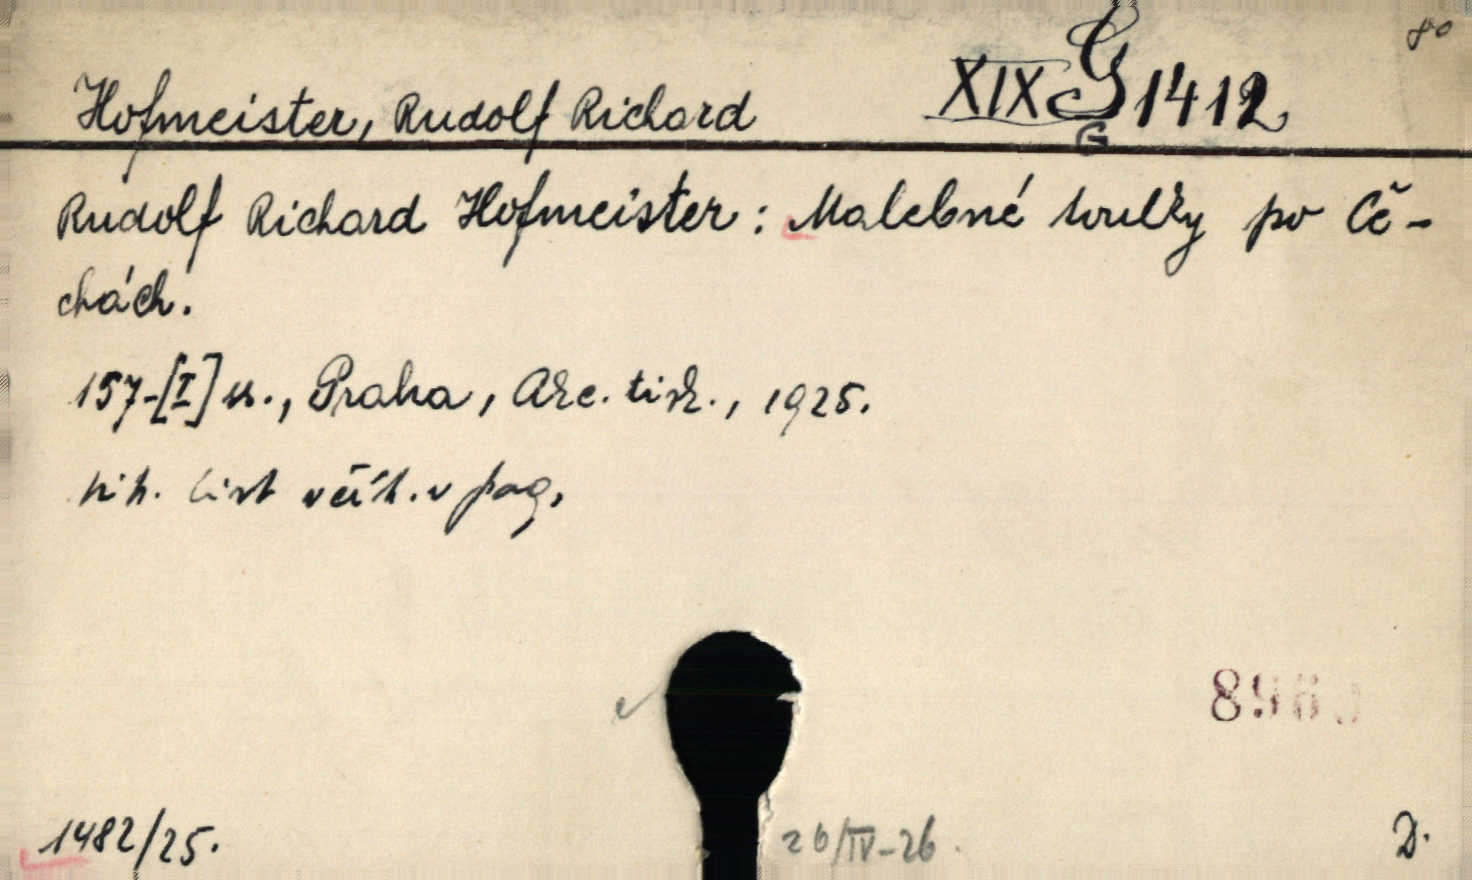 8°
XIX G 1412
G
Hofmeister, Rudolf Richard
Rudolf Richard Hofmeister: Malebné toulky po Če-
chách.
157-[I] s., Praha, Akc. tisk., 1925.
tit. list včít. v pag.
1482/25.
26/IV-26.
D.